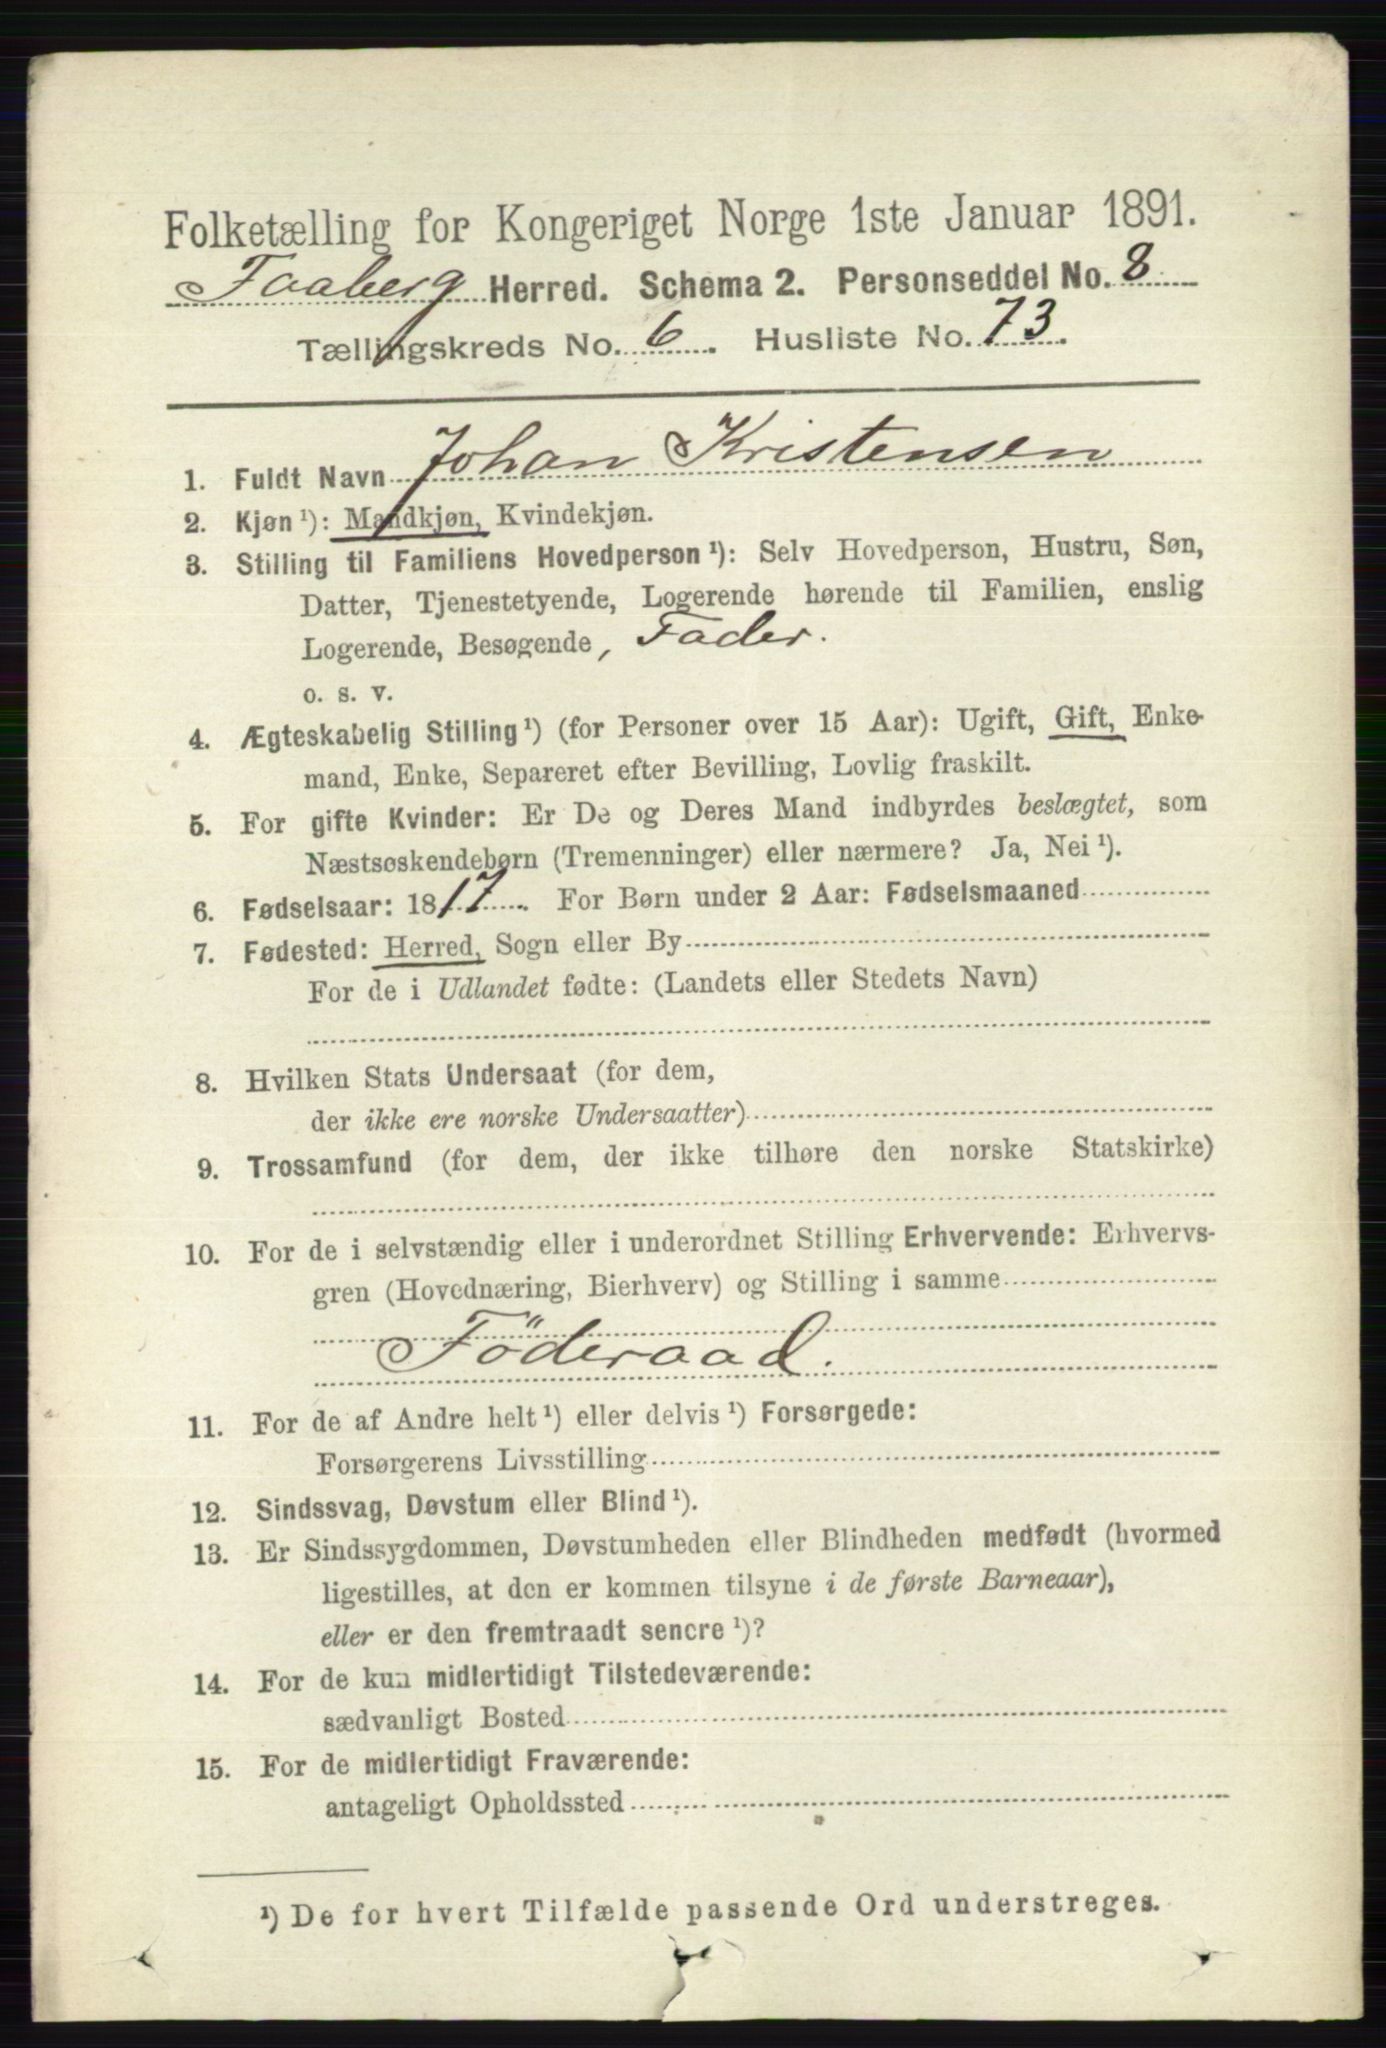 Folketælling for Kongeriget Norge 1ste Januar 1891.
Faaberg Herred. Schema 2. Personseddel No. 8
Tællingskreds No. 6. Husliste No. 73.
1. Fuldt Navn Johan Kristensen
2. Kjøn ¹): Mandkjøn, Kvindekjøn.
3. Stilling til Familiens Hovedperson ¹): Selv Hovedperson, Hustru, Søn,
Datter, Tjenestetyende, Logerende hørende til Familien, enslig
Logerende, Besøgende, Fader.
o. s. v.
4. Ægteskabelig Stilling ¹) (for Personer over 15 Aar): Ugift, Gift, Enke-
mand, Enke, Separeret efter Bevilling, Lovlig fraskilt.
5. For gifte Kvinder: Er De og Deres Mand indbyrdes beslægtet, som
Næstsøskendebørn (Tremenninger) eller nærmere? Ja, Nei ¹).
6. Fødselsaar: 1817. For Børn under 2 Aar: Fødselsmaaned
7. Fødested: Herred, Sogn eller By
For de i Udlandet fødte: (Landets eller Stedets Navn)
8. Hvilken Stats Undersaat (for dem,
der ikke ere norske Undersaatter)
9. Trossamfund (for dem, der ikke tilhøre den norske Statskirke)
10. For de i selvstændig eller i underordnet Stilling Erhvervende: Erhvervs-
gren (Hovednæring, Bierhverv) og Stilling i samme
Föderaad.
11. For de af Andre helt ¹) eller delvis ¹) Forsørgede:
Forsørgerens Livsstilling
12. Sindssvag, Døvstum eller Blind ¹).
13. Er Sindssygdommen, Døvstumheden eller Blindheden medfødt (hvormed
ligestilles, at den er kommen tilsyne i de første Barneaar),
eller er den fremtraadt senere ¹)?
14. For de kun midlertidigt Tilstedeværende:
sædvanligt Bosted
15. For de midlertidigt Fraværende:
antageligt Opholdssted
¹) De for hvert Tilfælde passende Ord understreges.